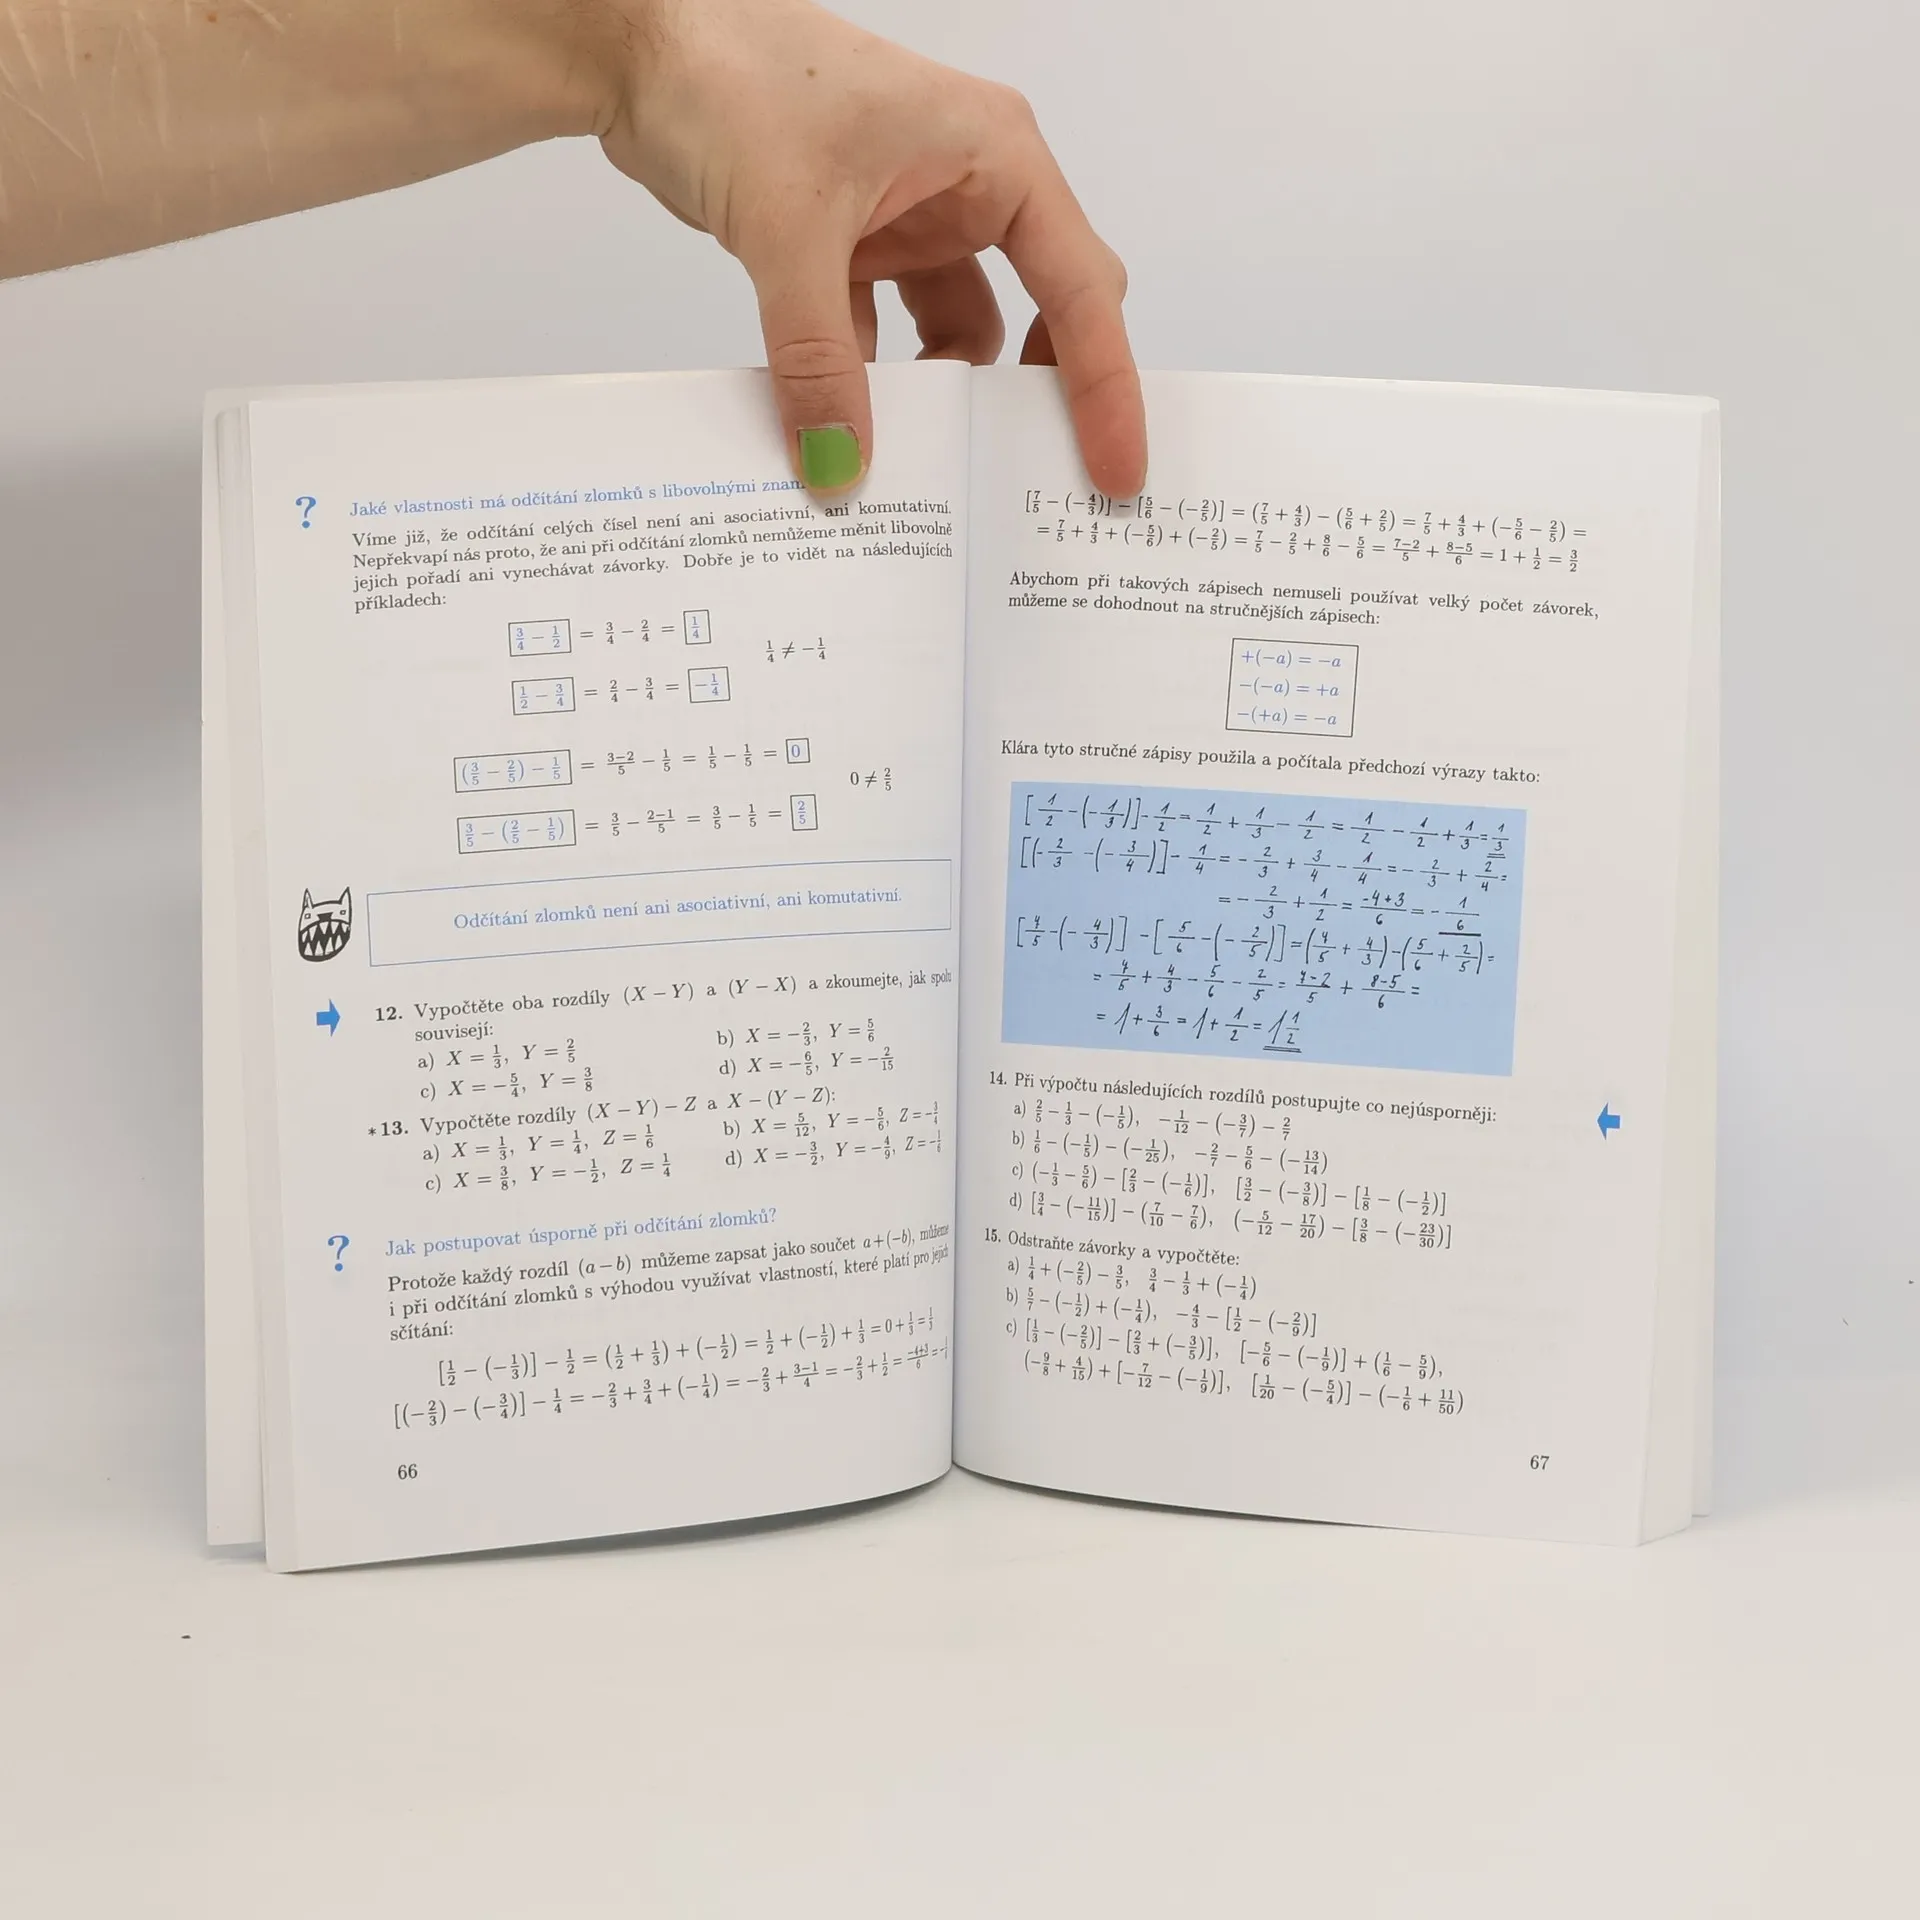 ? Jaké vlastnosti má odčítání zlomků s libovolnými
Víme již, že odčítání celých čísel není ani asociativní, ani komutativní.
Nepřekvapí nás proto, že ani při odčítání zlomků nemůžeme měnit libovolně
jejich pořadí ani vynechávat závorky. Dobře je to vidět na následujících
příkladech:
3/4 − 1/2 = 3/4 − 2/4 = 1/4
1/4 ≠ −1/4
1/2 − 3/4 = 2/4 − 3/4 = −1/4
(3/5 − 2/5) − 1/5 = 3−2/5 − 1/5 = 1/5 − 1/5 = 0
0 ≠ 2/5
3/5 − (2/5 − 1/5) = 3/5 − 2−1/5 = 3/5 − 1/5 = 2/5
Odčítání zlomků není ani asociativní, ani komutativní.
12. Vypočtěte oba rozdíly (X − Y) a (Y − X) a zkoumejte, jak spolu
souvisejí:
a) X = 1/3, Y = 2/5 b) X = −2/3, Y = 5/6
c) X = −5/4, Y = 3/8 d) X = −6/5, Y = −2/15
*13. Vypočtěte rozdíly (X − Y) − Z a X − (Y − Z):
a) X = 1/3, Y = 1/4, Z = 1/6 b) X = 5/12, Y = −5/6, Z = −3/4
c) X = 3/8, Y = −1/2, Z = 1/4 d) X = −3/2, Y = −4/9, Z = −1/6
? Jak postupovat úsporně při odčítání zlomků?
Protože každý rozdíl (a − b) můžeme zapsat jako součet a+(−b), můžeme
i při odčítání zlomků s výhodou využívat vlastností, které platí pro jejich
sčítání:
[1/2 − (−1/3)] − 1/2 = (1/2 + 1/3) + (−1/2) = 1/2 + (−1/2) + 1/3 = 0 + 1/3 = 1/3
[(−2/3) − (−3/4)] − 1/4 = −2/3 + 3/4 + (−1/4) = −2/3 + 3−1/4 = −2/3 + 1/2 = −4+3/6 = −1/6
66
[7/5 − (−4/3)] − [5/6 − (−2/5)] = (7/5 + 4/3) − (5/6 + 2/5) = 7/5 + 4/3 + (−5/6 − 2/5) =
= 7/5 + 4/3 + (−5/6) + (−2/5) = 7/5 − 2/5 + 8/6 − 5/6 = 7−2/5 + 8−5/6 = 1 + 1/2 = 3/2
Abychom při takových zápisech nemuseli používat velký počet závorek,
můžeme se dohodnout na stručnějších zápisech:
+(−a) = −a
−(−a) = +a
−(+a) = −a
Klára tyto stručné zápisy použila a počítala předchozí výrazy takto:
[1/2 − (−1/3)] − 1/2 = 1/2 + 1/3 − 1/2 = 1/2 − 1/2 + 1/3 = 1/3
[(−2/3 − (−3/4)] − 1/4 = −2/3 + 3/4 − 1/4 = −2/3 + 2/4 =
= −2/3 + 1/2 = −4+3/6 = −1/6
[7/5 − (−4/3)] − [5/6 − (−2/5)] = (7/5 + 4/3) − (5/6 + 2/5) =
= 7/5 + 4/3 − 5/6 − 2/5 = 7−2/5 + 8−5/6 =
= 1 + 3/6 = 1 + 1/2 = 1 1/2
14. Při výpočtu následujících rozdílů postupujte co nejúsporněji:
a) 2/5 − 1/3 − (−1/5), −1/12 − (−3/7) − 2/7
b) 1/6 − (−1/5) − (−1/25), −2/7 − 5/6 − (−13/14)
c) (−1/3 − 5/6) − [2/3 − (−1/6)], [3/2 − (−3/8)] − [1/8 − (−1/2)]
d) [3/4 − (−11/15)] − (7/10 − 7/6), (−5/12 − 17/20) − [3/8 − (−23/30)]
15. Odstraňte závorky a vypočtěte:
a) 1/4 + (−2/5) − 3/5, 3/4 − 1/3 + (−1/4)
b) 5/7 − (−1/2) + (−1/4), −4/3 − [1/2 − (−2/9)]
c) [1/3 − (−2/5)] − [2/3 + (−3/5)], [−5/6 − (−1/9)] + (1/6 − 5/9),
(−9/8 + 4/15) + [−7/12 − (−1/9)], [1/20 − (−5/4)] − (−1/6 + 11/50)
67